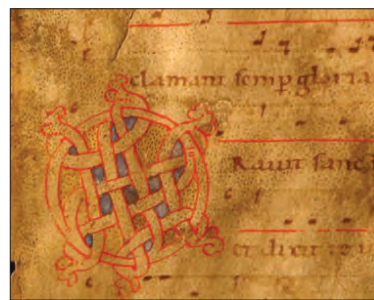 clamant semp gloria
Raut sanc
et dixit